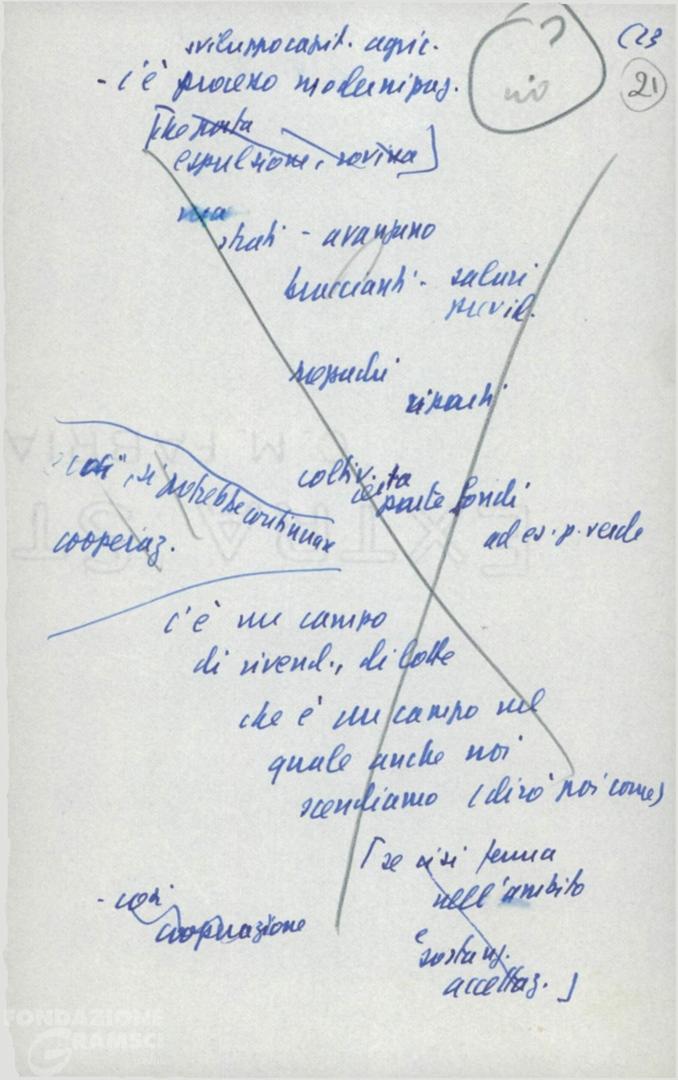 svilupp capit. agric.
- c'è processo modernizzaz.
[che porta
espulsione, rovina]
ma
strati - avanzano
braccianti - salari
previd.
riparti
coltiv.
parte fondi
ad es. p. verde
così, si potrebbe continuare
cooperaz.
c'è un campo
di rivend., di lotte
che è un campo nel
quale anche noi
scendiamo (dirò poi come)
[se ci si ferma
nell'ambito
è
sostanz.
accettaz.]
- così
cooperazione
no
21
FONDAZIONE
GRAMSCI